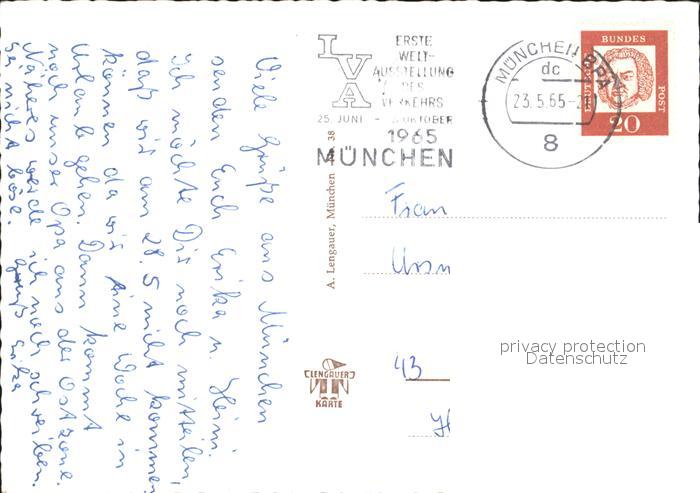 Viele Grüße aus München
senden Euch Erika u. Heini.
Ich möchte Dir noch mitteilen,
daß wir am 28.5 nicht kommen
können da wir eine Woche in
Urlaub gehen. Dann kommt
noch unser Opa aus der Ostzone.
Näheres werde ich noch schreiben.
Sei nicht böse. Gruß Erika
LVA
ERSTE
WELT-
AUSSTELLUNG
DES
VERKEHRS
25. JUNI - 3. OKTOBER
1965
MÜNCHEN
MÜNCHEN BPA
dc
23.5.65-
8
BUNDES
POST
20
A. Lengauer, München 38
Frau
Ursu
43
LENGAUER
KARTE
privacy protection
Datenschutz